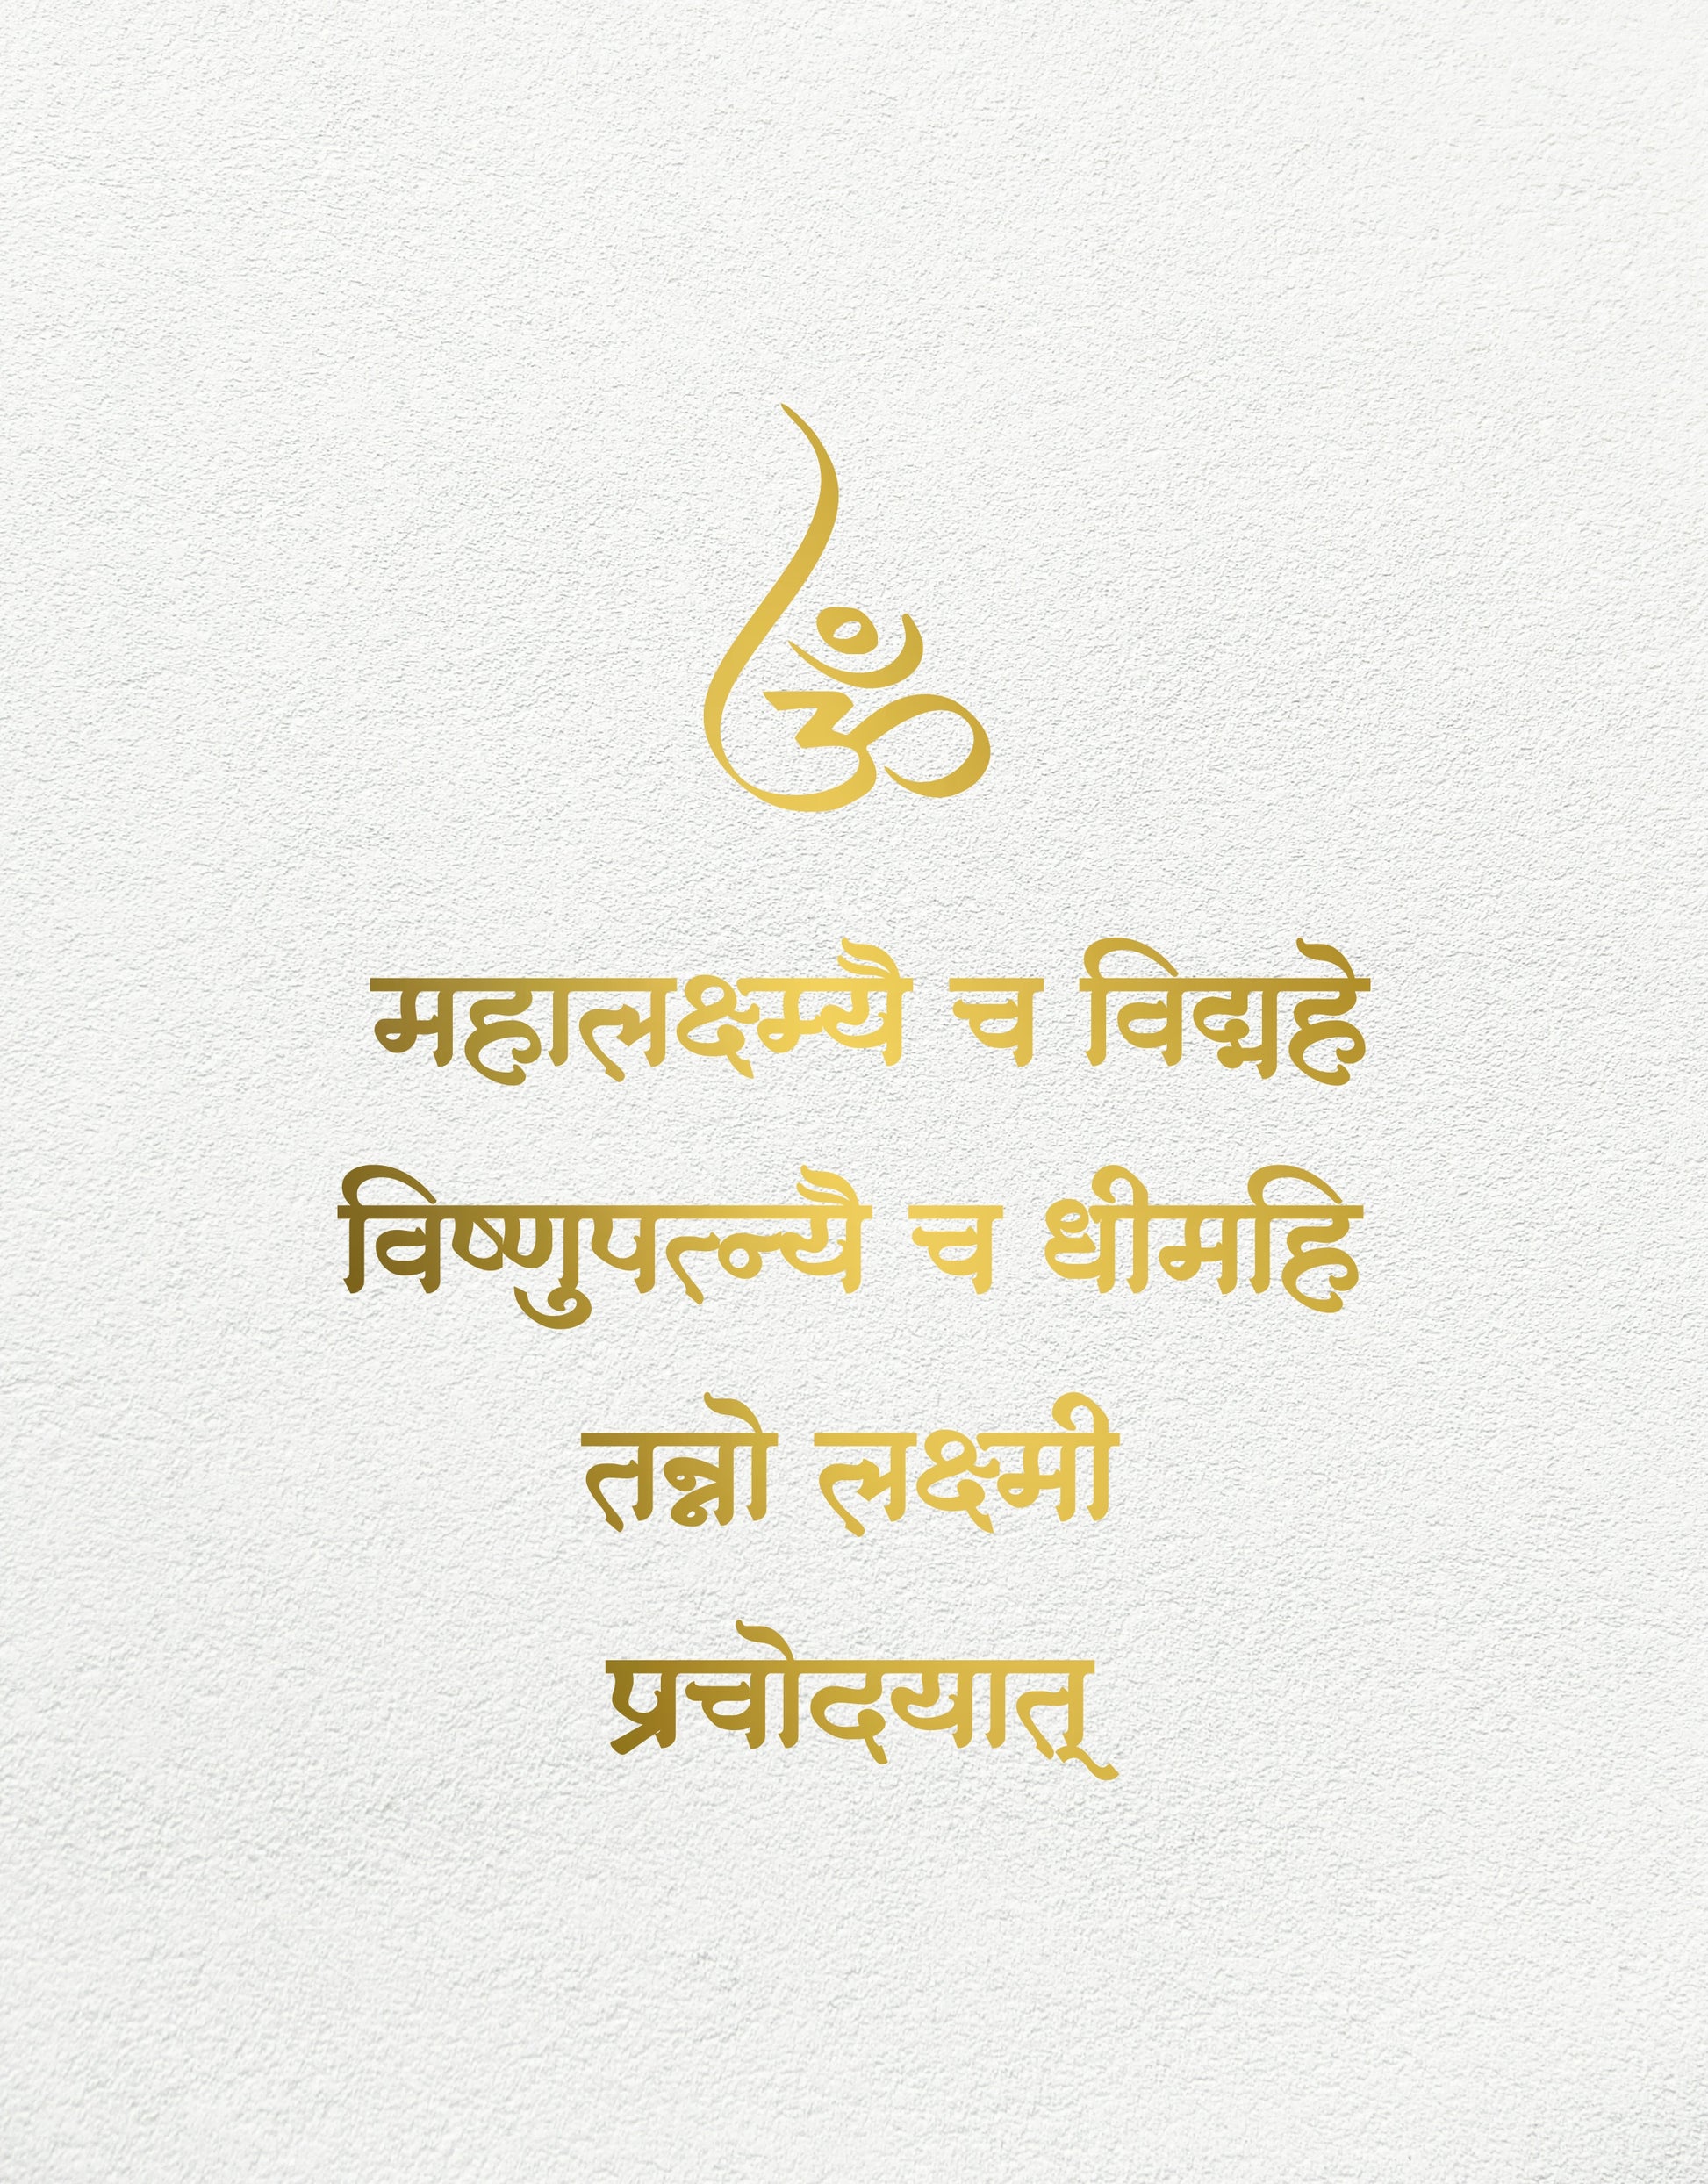 ॐ
महालक्ष्म्यै च विद्महे
विष्णुपत्न्यै च धीमहि
तन्नो लक्ष्मी
प्रचोदयात्